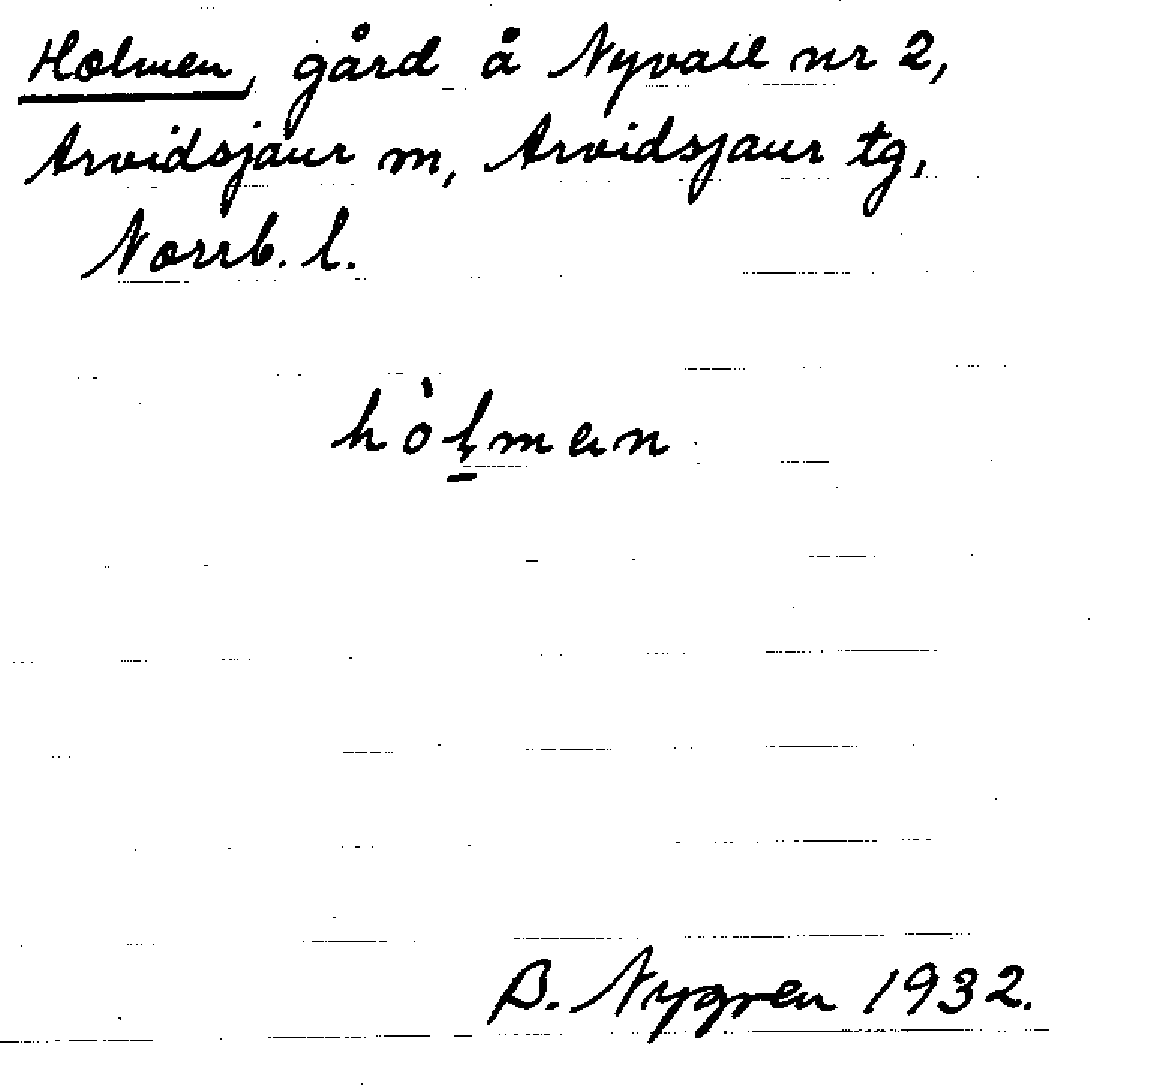 Holmen, gård å Nyvall nr 2,
Arvidsjaur m, Arvidsjaur tg,
Norrb. l.
hòl̠mɘn
B. Nygren 1932.